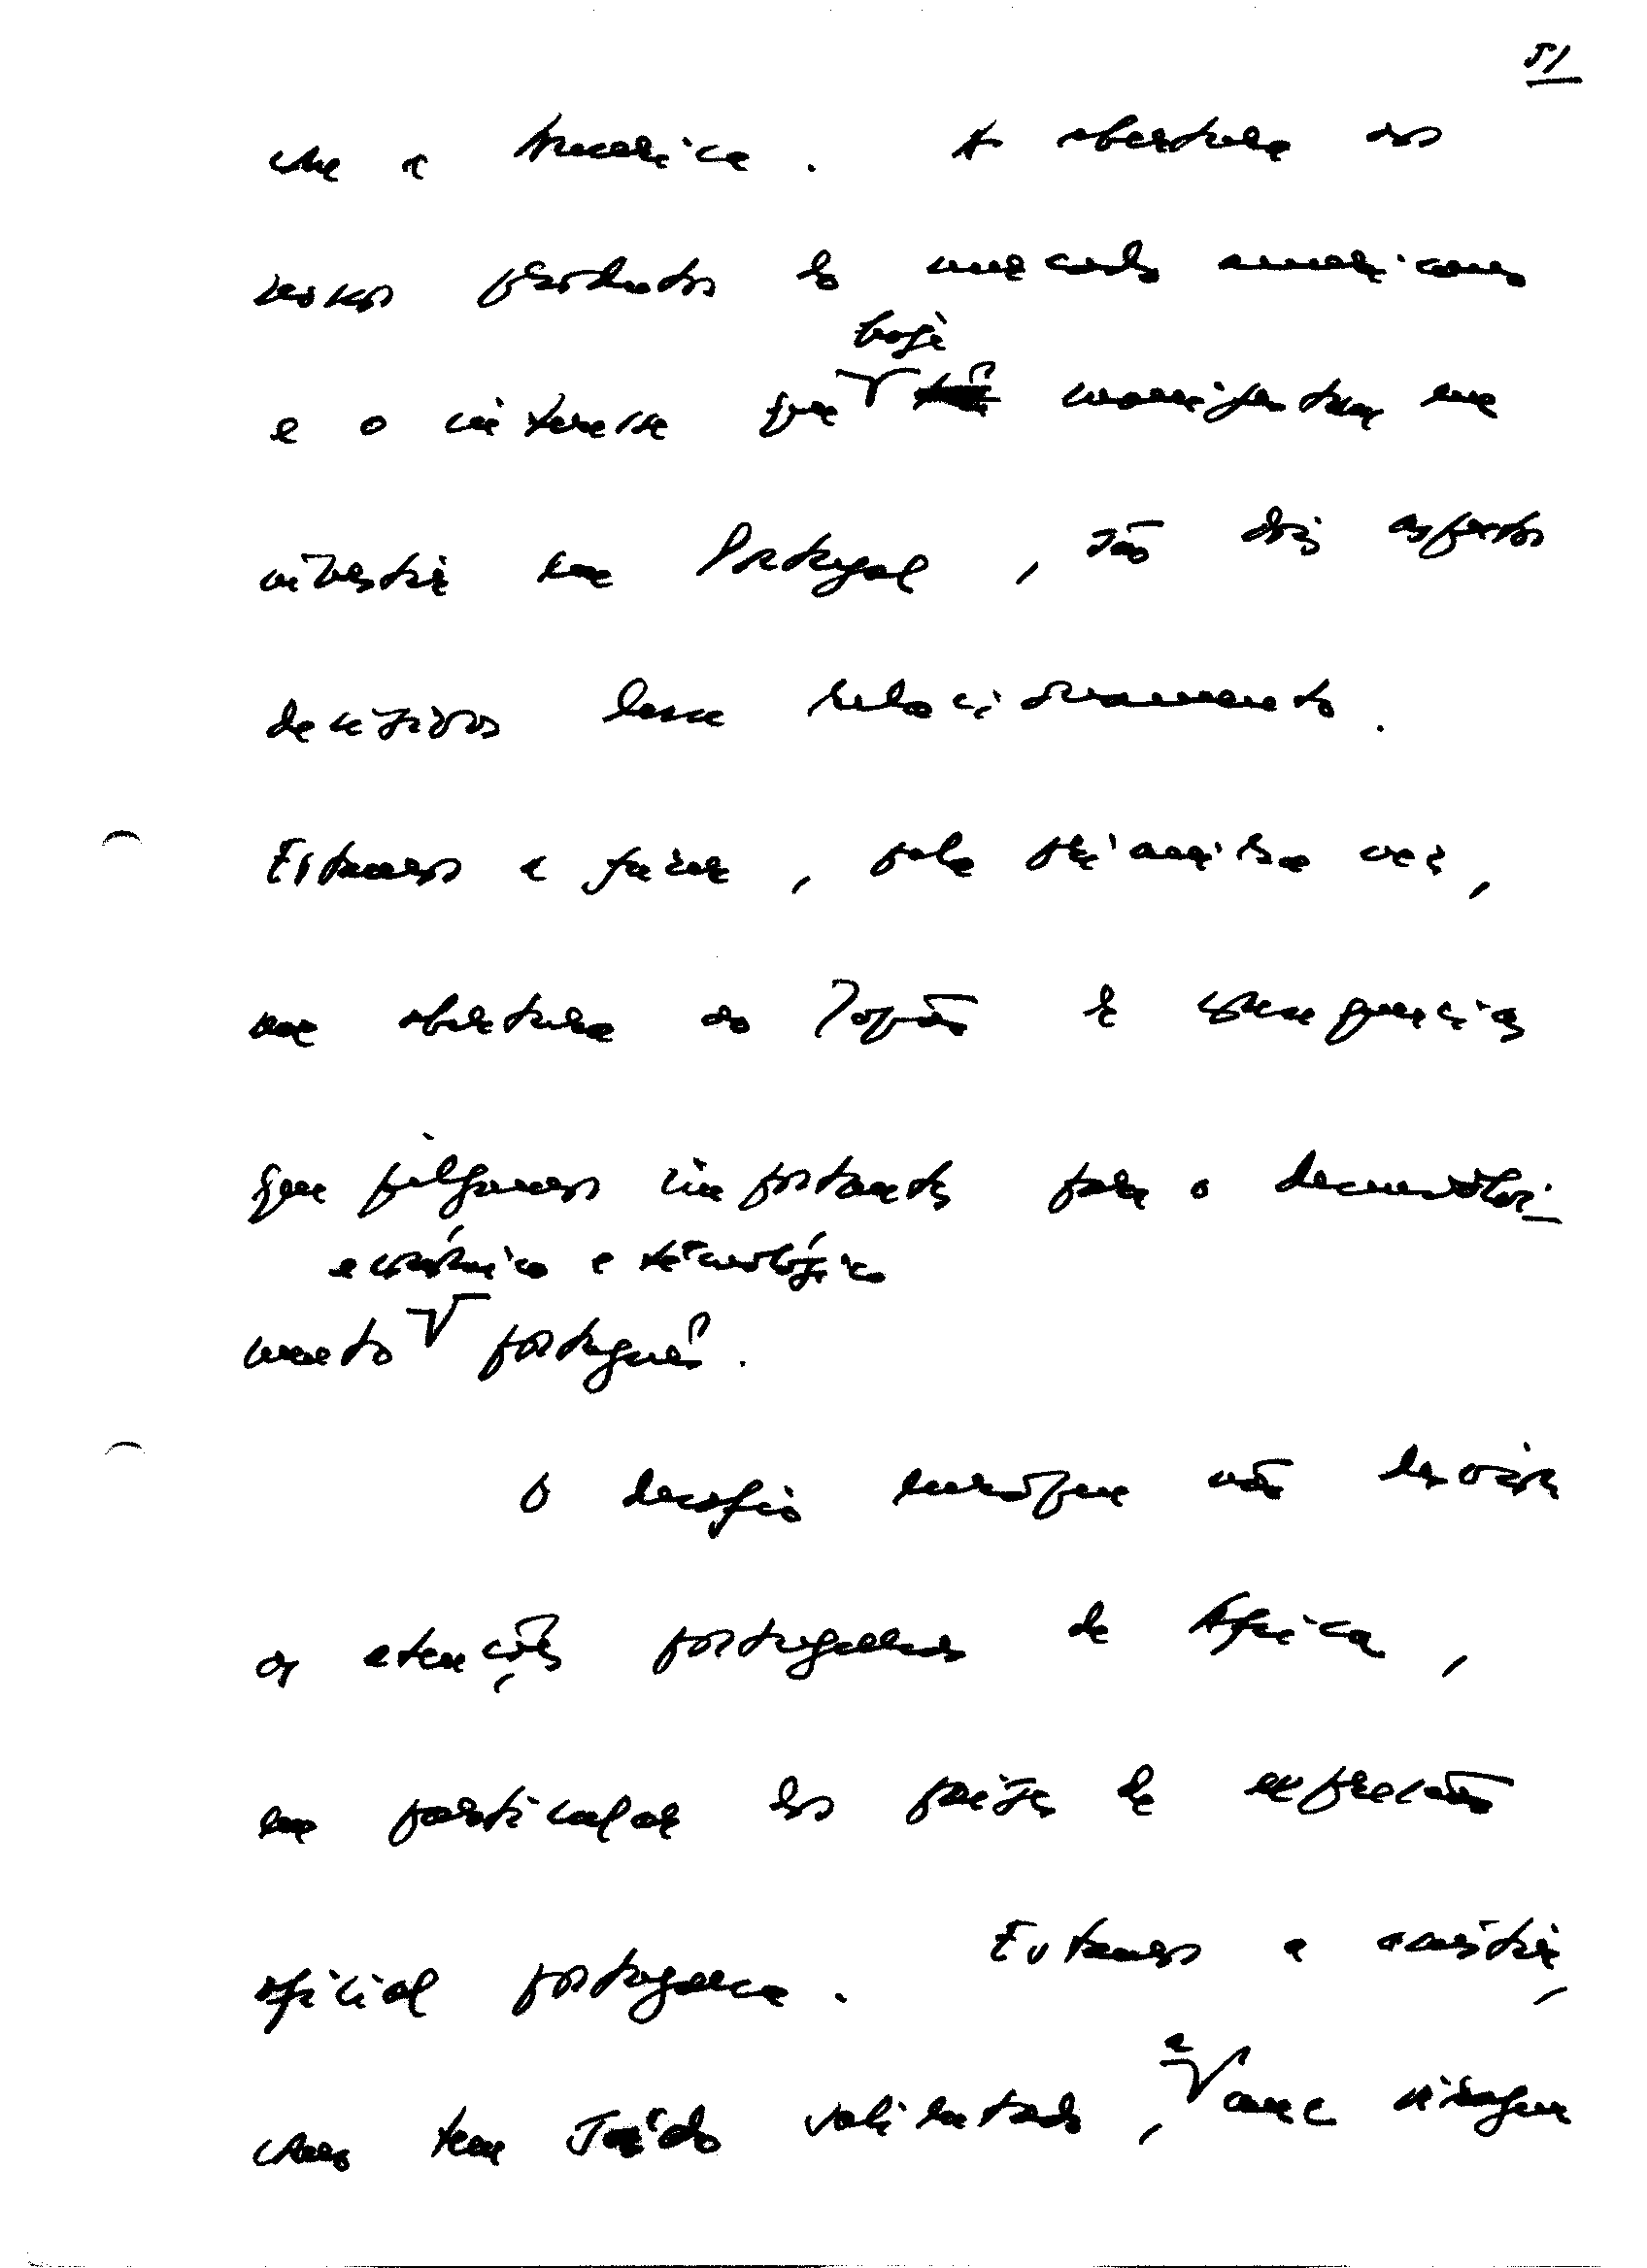 51
com a America. A abertura aos
nossos produtos do mercado americano
hoje
e o interesse que manifestam em
investir em Portugal, são dois aspectos
decisivos desse relacionamento.
Estamos a fazer, pela primeira vez,
uma abertura ao Japão de consequências
que julgamos importantes para o desenvolvi-
económico e tecnológico
mento português.
O desafio europeu não desvia
as atenções portuguesas de África,
em particular dos países de expressão
oficial portuguesa. Estamos a assistir,
como tem sido salientado, a uma viragem